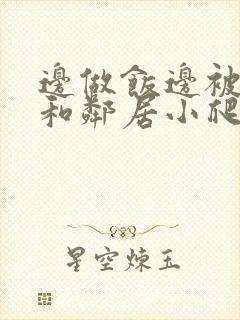 邊做飯邊被
和鄰居小爬
星空煉玉